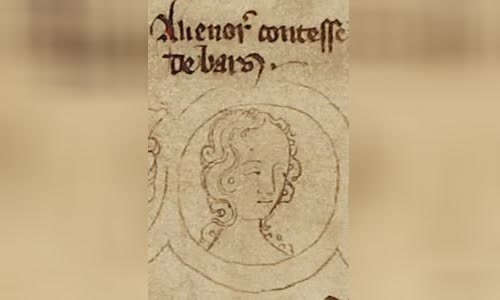 Alienor contesse
de bars.